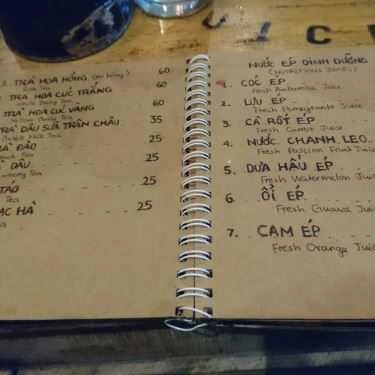 TRÀ HOA HỒNG 60
Rose Tea
TRÀ HOA CÚC TRẮNG 60
White Daisy Tea
TRÀ HOA CÚC VÀNG 60
TRÀ DÂU SỮA TRÂN CHÂU 35
TRÀ ĐÀO 25
DÂU 25
TÁO 25
Tea
ẠC HÀ 25
NƯỚC ÉP DINH DƯỠNG
1. CÓC ÉP
Fresh Ambarella Juice
2. LỰU ÉP
Fresh Pomegranate Juice
3. CÀ RỐT ÉP
Fresh Carrot Juice
4. NƯỚC CHANH LEO
Fresh Passion Fruit Juice
5. DƯA HẤU ÉP
Fresh Watermelon Juice
6. ỔI ÉP
Fresh Guava Juice
7. CAM ÉP
Fresh Orange Juice